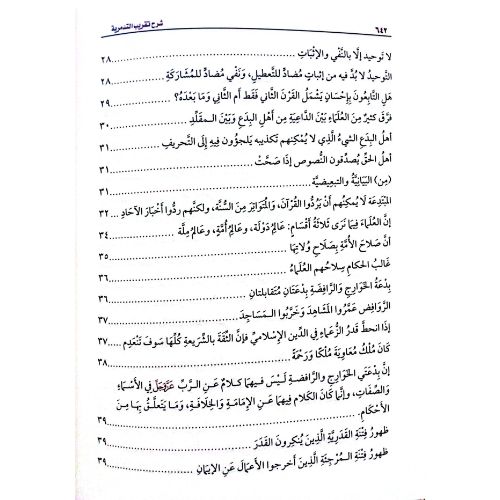 ٦٤٢ شرح تقريب التدمرية
لا توحيد إلَّا بالنَّفْي والإثْبَاتِ ............ ٢٨
التَّوحيدُ لا بُدَّ فيه من إثباتٍ مُضادٍّ للتَّعطيلِ، ونَفْي مُضادٍّ للمُشَارَكَةِ ............ ٢٨
هَلِ التَّابِعُونَ بِإحْسَانٍ يَشْمَلُ القَرْنَ الثَّاني فَقَط أمِ الثَّاني وَمَا بَعْدَهُ؟ ............ ٢٩
فرَّقَ كثيرٌ مِنَ العُلَمَاءِ بَيْنَ الدَّاعِيَةِ مِن أهْلِ البِدَعِ وبَيْنَ المـقَلِّـدِ ............ ٣٠
أهلُ البِدَعِ الشيءُ الَّذي لا يُمْكِنُهم تَكذيبُه يَلجؤُونَ فِيهِ إلَى التَّحريفِ ............ ٣١
أهلُ الحَقِّ يُصدِّقونَ النُّصوصَ إذَا صَحَّتْ ............ ٣١
(مِن) البَيَانِيَّةُ والتبعيضيَّة ............ ٣١
المُبْتَدِعَة لَا يُمكِنُهُم أَنْ يَرُدُّوا القُرْآنَ، والمُتَوَاتِرَ مِنَ السُّنَّة، ولكنَّهم ردُّوا أخْبَارَ الآحَادِ ... ٣٢
إنَّ العُلَمَاءَ فِيمَا نَرَى ثَلَاثَةُ أقْسَامٍ: عَالِمُ دَوْلَة، وعَالِمُ أُمَّةٍ، وعَالِمُ مِلَّة ............ ٣٤
أنَّ صَلَاحَ الأُمَّةِ بِصَلَاحِ وُلَاتِهَا ............ ٣٥
غَالبُ الحكامِ سِلاحُهم العُلَمَاءُ ............ ٣٥
بِدْعَةُ الخَوَارِجِ والرَّافِضَةِ بِدْعَتَانِ مُتَقَابلتَانِ ............ ٣٦
الرَّوَافِضُ عَمَّرُوا المَشَاهِدَ وَخَرَّبُوا المَـسَاجِدَ ............ ٣٧
إذَا انحطَّ قَدْرُ الزُّعَمَاءِ في الدِّينِ الإسْلَاميِّ فإنَّ الثِّقَةَ بالشَّرِيعَةِ كُلَّهَا سَوفَ تَنْعَدِم ..... ٣٧
كَانَ مُلْكُ مُعَاوِيَةَ مُلْكًا وَرَحْمَةً ............ ٣٨
إنَّ بِدْعَتَي الخَوَارِجِ والرَّافضةِ لَيْسَ فيهمَا كَـلامٌ عَـنِ الـرَّبِّ عَزَّوَجَلَّ في الأَسْمَاءِ
وَالصِّفَاتِ، وإنَّما كَانَ الكَلام فِيهِمَا عَنِ الإمَامَةِ والخِلَافَةِ، وَمَا يَتَعلَّـقُ بِهَا مِـنَ
الأحْكَامِ. ............ ٣٩
ظهورُ فِتْنَةِ القَدَرِيَّةِ الَّذِينَ يُنكِرونَ القَدَرَ ............ ٣٩
ظهورُ فِتْنَةِ المُـرْجِئَةِ الَّذينَ أخرجوا الأعمَالَ عَنِ الإيمَانِ ............ ٣٩